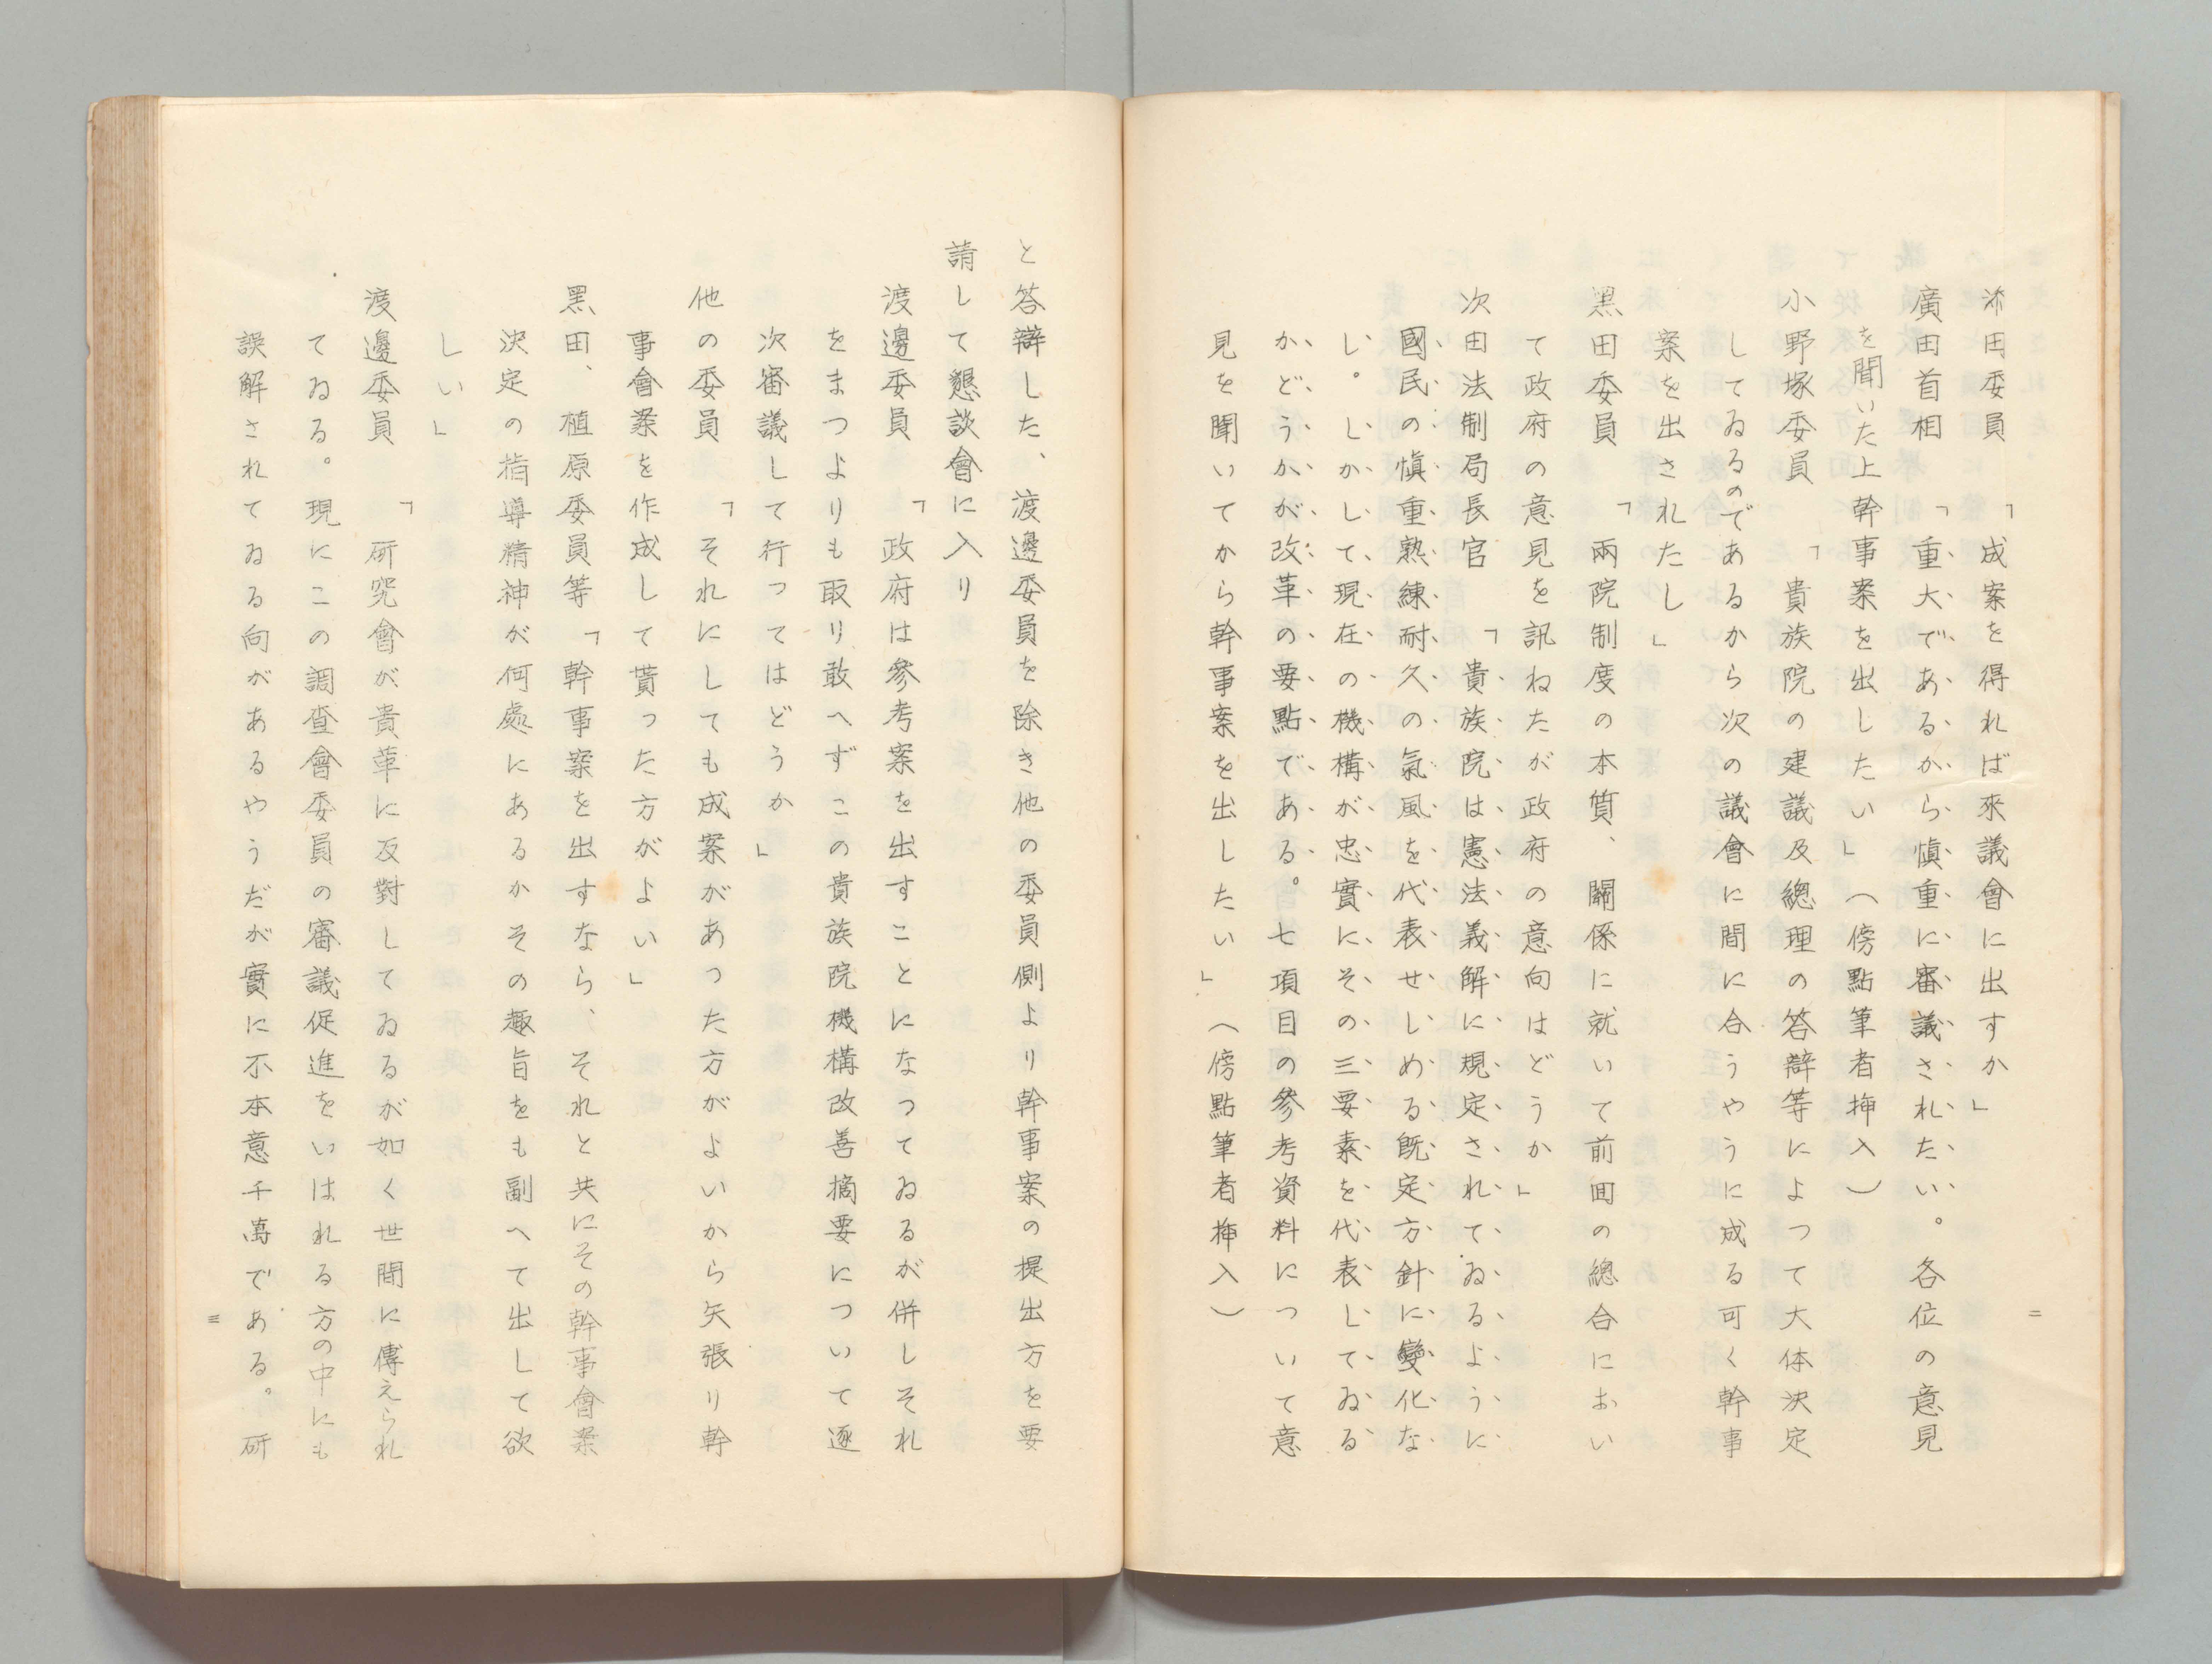 二
添田委員　「成案を得れば來議會に出すか」
廣田首相　「重大であるから愼重に審議されたい。各位の意見
を聞いた上幹事案を出したい」（傍點筆者揷入）
小野塚委員　「貴族院の建議及總理の答辯等によつて大体決定
してゐるのであるから次の議會に間に合うやうに成る可く幹事
案を出されたし」
黑田委員　「兩院制度の本質、關係に就いて前囬の總合におい
て政府の意見を訊ねたが政府の意向はどうか」
次田法制局長官　「貴族院は憲法義解に規定されてゐるように
國民の愼重熟練耐久の氣風を代表せしめる旣定方針に變化な
し。しかして現在の機構が忠實にその三要素を代表してゐる
かどうかが改革の要點である。七項目の參考資料について意
見を聞いてから幹事案を出したい」（傍點筆者揷入）
と答辯した、渡邊委員を除き他の委員側より幹事案の提出方を要
請して懇談會に入り
渡邊委員　「政府は參考案を出すことになつてゐるが併しそれ
をまつよりも取り敢へずこの貴族院機構改善摘要について逐
次審議して行つてはどうか」
他の委員　「それにしても成案があつた方がよいから矢張り幹
事會案を作成して貰つた方がよい」
黑田、植原委員等「幹事案を出すなら、それと共にその幹事會案
決定の指導精神が何處にあるかその趣旨をも副へて出して欲
しい」
渡邊委員　「研究會が貴革に反對してゐるが如く世間に傳えられ
てゐる。現にこの調查會委員の審議促進をいはれる方の中にも
誤解されてゐる向があるやうだが實に不本意千萬である。研
三